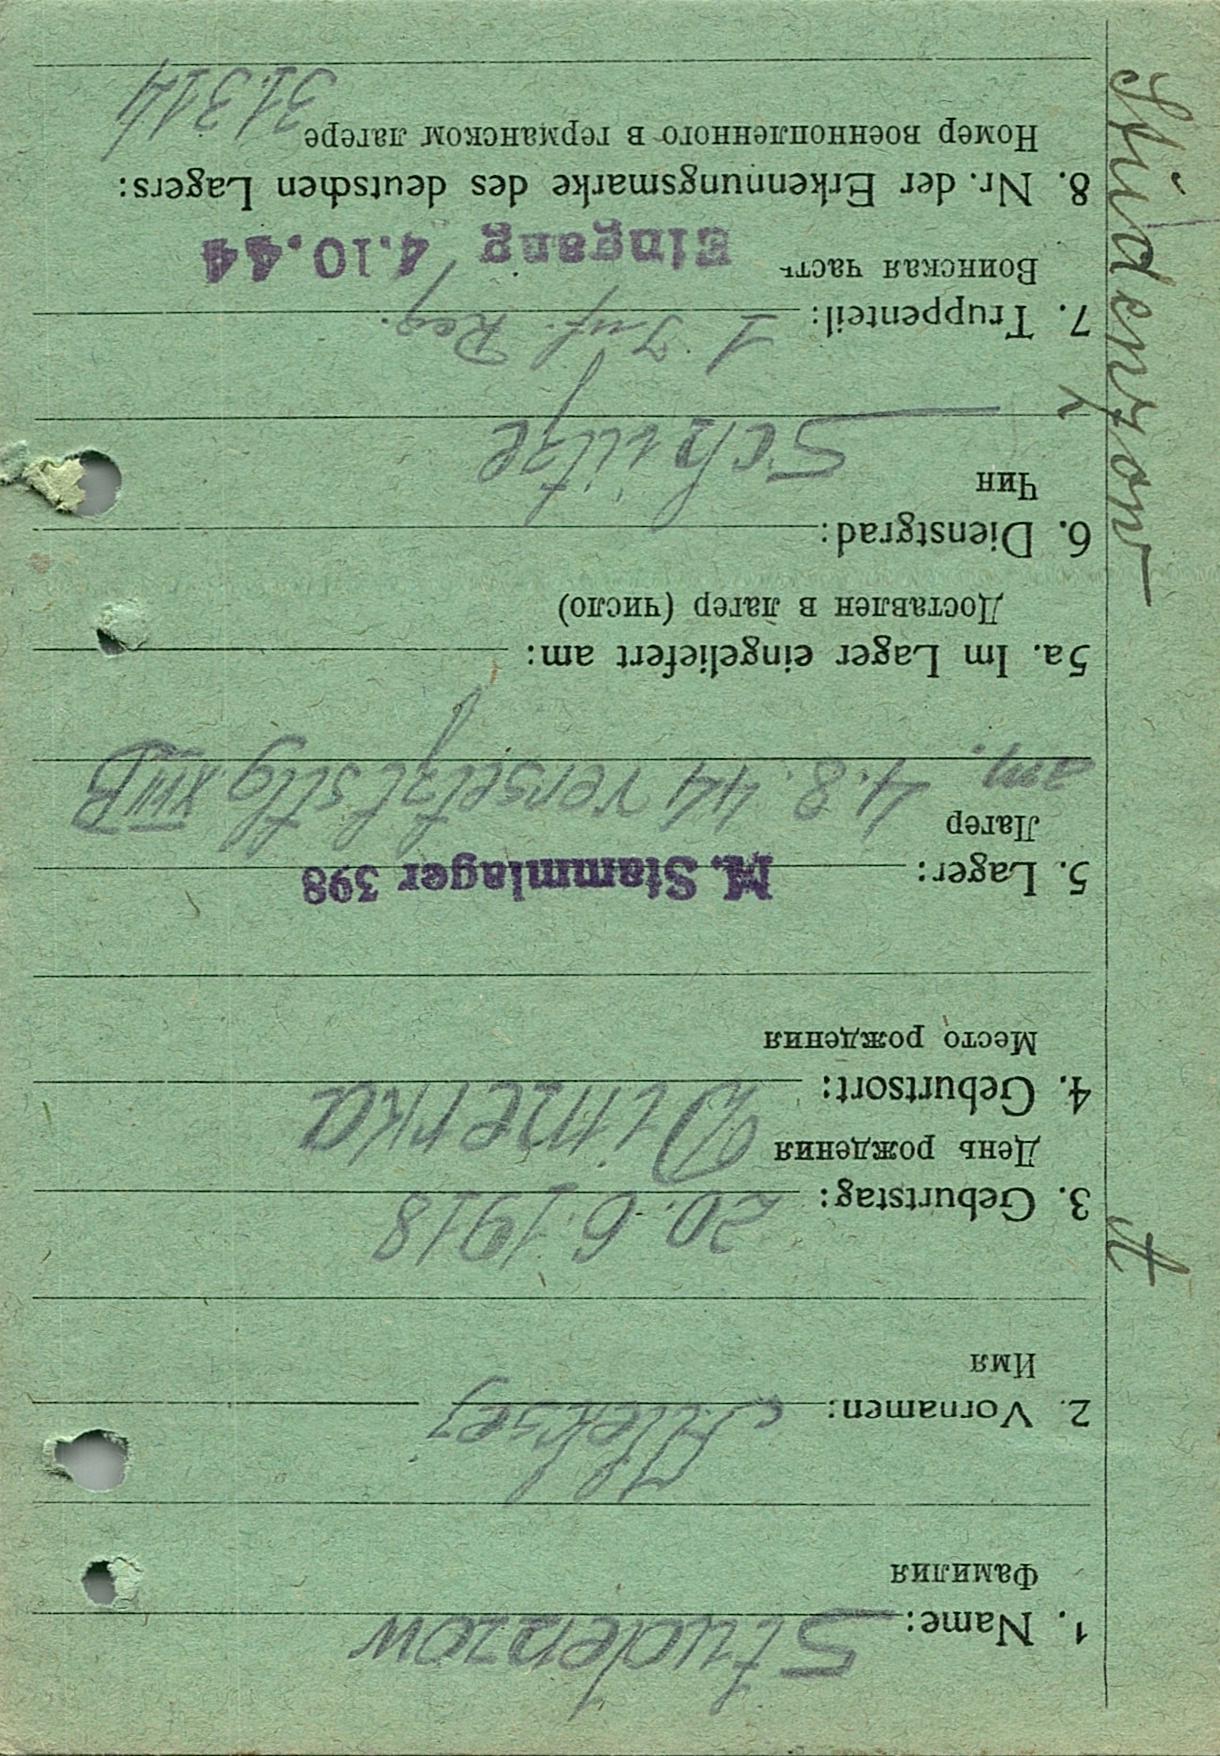 1. Name: Studenzow
Фамилия
2. Vornamen: Aleksej
Имя
3. Geburtstag: 20.6.1918
День рождения
4. Geburtsort: Dimerka
Место рождения
5. Lager: M. Stammlager 398
Лагер
am. 4.8.44 versetzt Stlg XVII B
5a. Im Lager eingeliefert am:
Доставлен в лагер (число)
6. Dienstgrad: Schütze
Чин
7. Truppenteil: 1 Inf. Reg.
Воинская часть
Eingang 4.10.44
8. Nr. der Erkennungsmarke des deutschen Lagers:
Номер военнопленного в германском лагере 31314
Studenzow
A